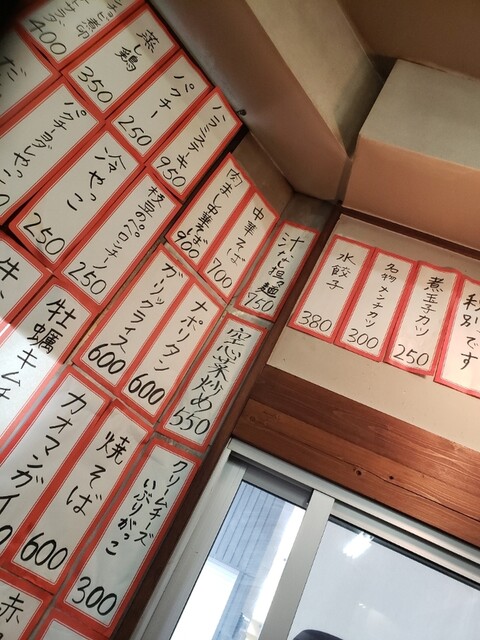 400
蒸し鶏
350
パクチー
250
ハラミステーキ
950
肉まし中華そば
900
中華そば
700
汁なし担々麺
750
水餃子
380
名物メンチカツ
300
煮玉子カツ
250
別です
250
冷やっこ
250
枝豆のペペロンチーノ
250
ガーリックライス
600
ナポリタン
600
空心菜炒め
550
牛
牡蠣キムチ
カオマンガイ
600
焼そば
600
クリームチーズ
いぶりがっこ
300
赤